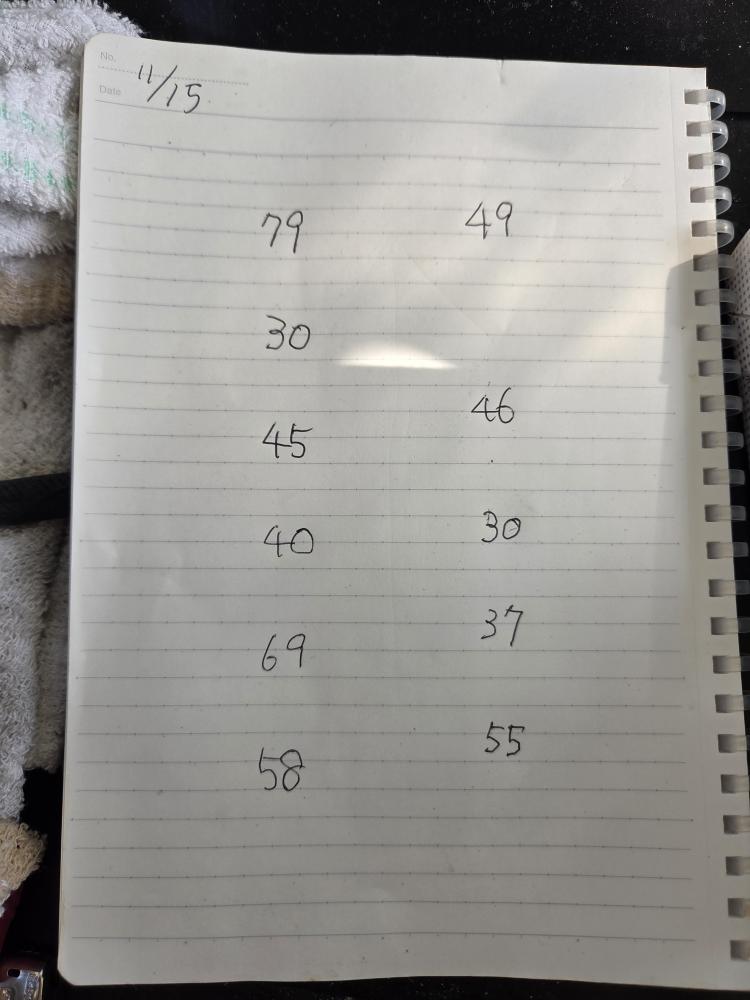 No. 11/15
Date
79 49
30
46
45
40 30
69 37
58 55